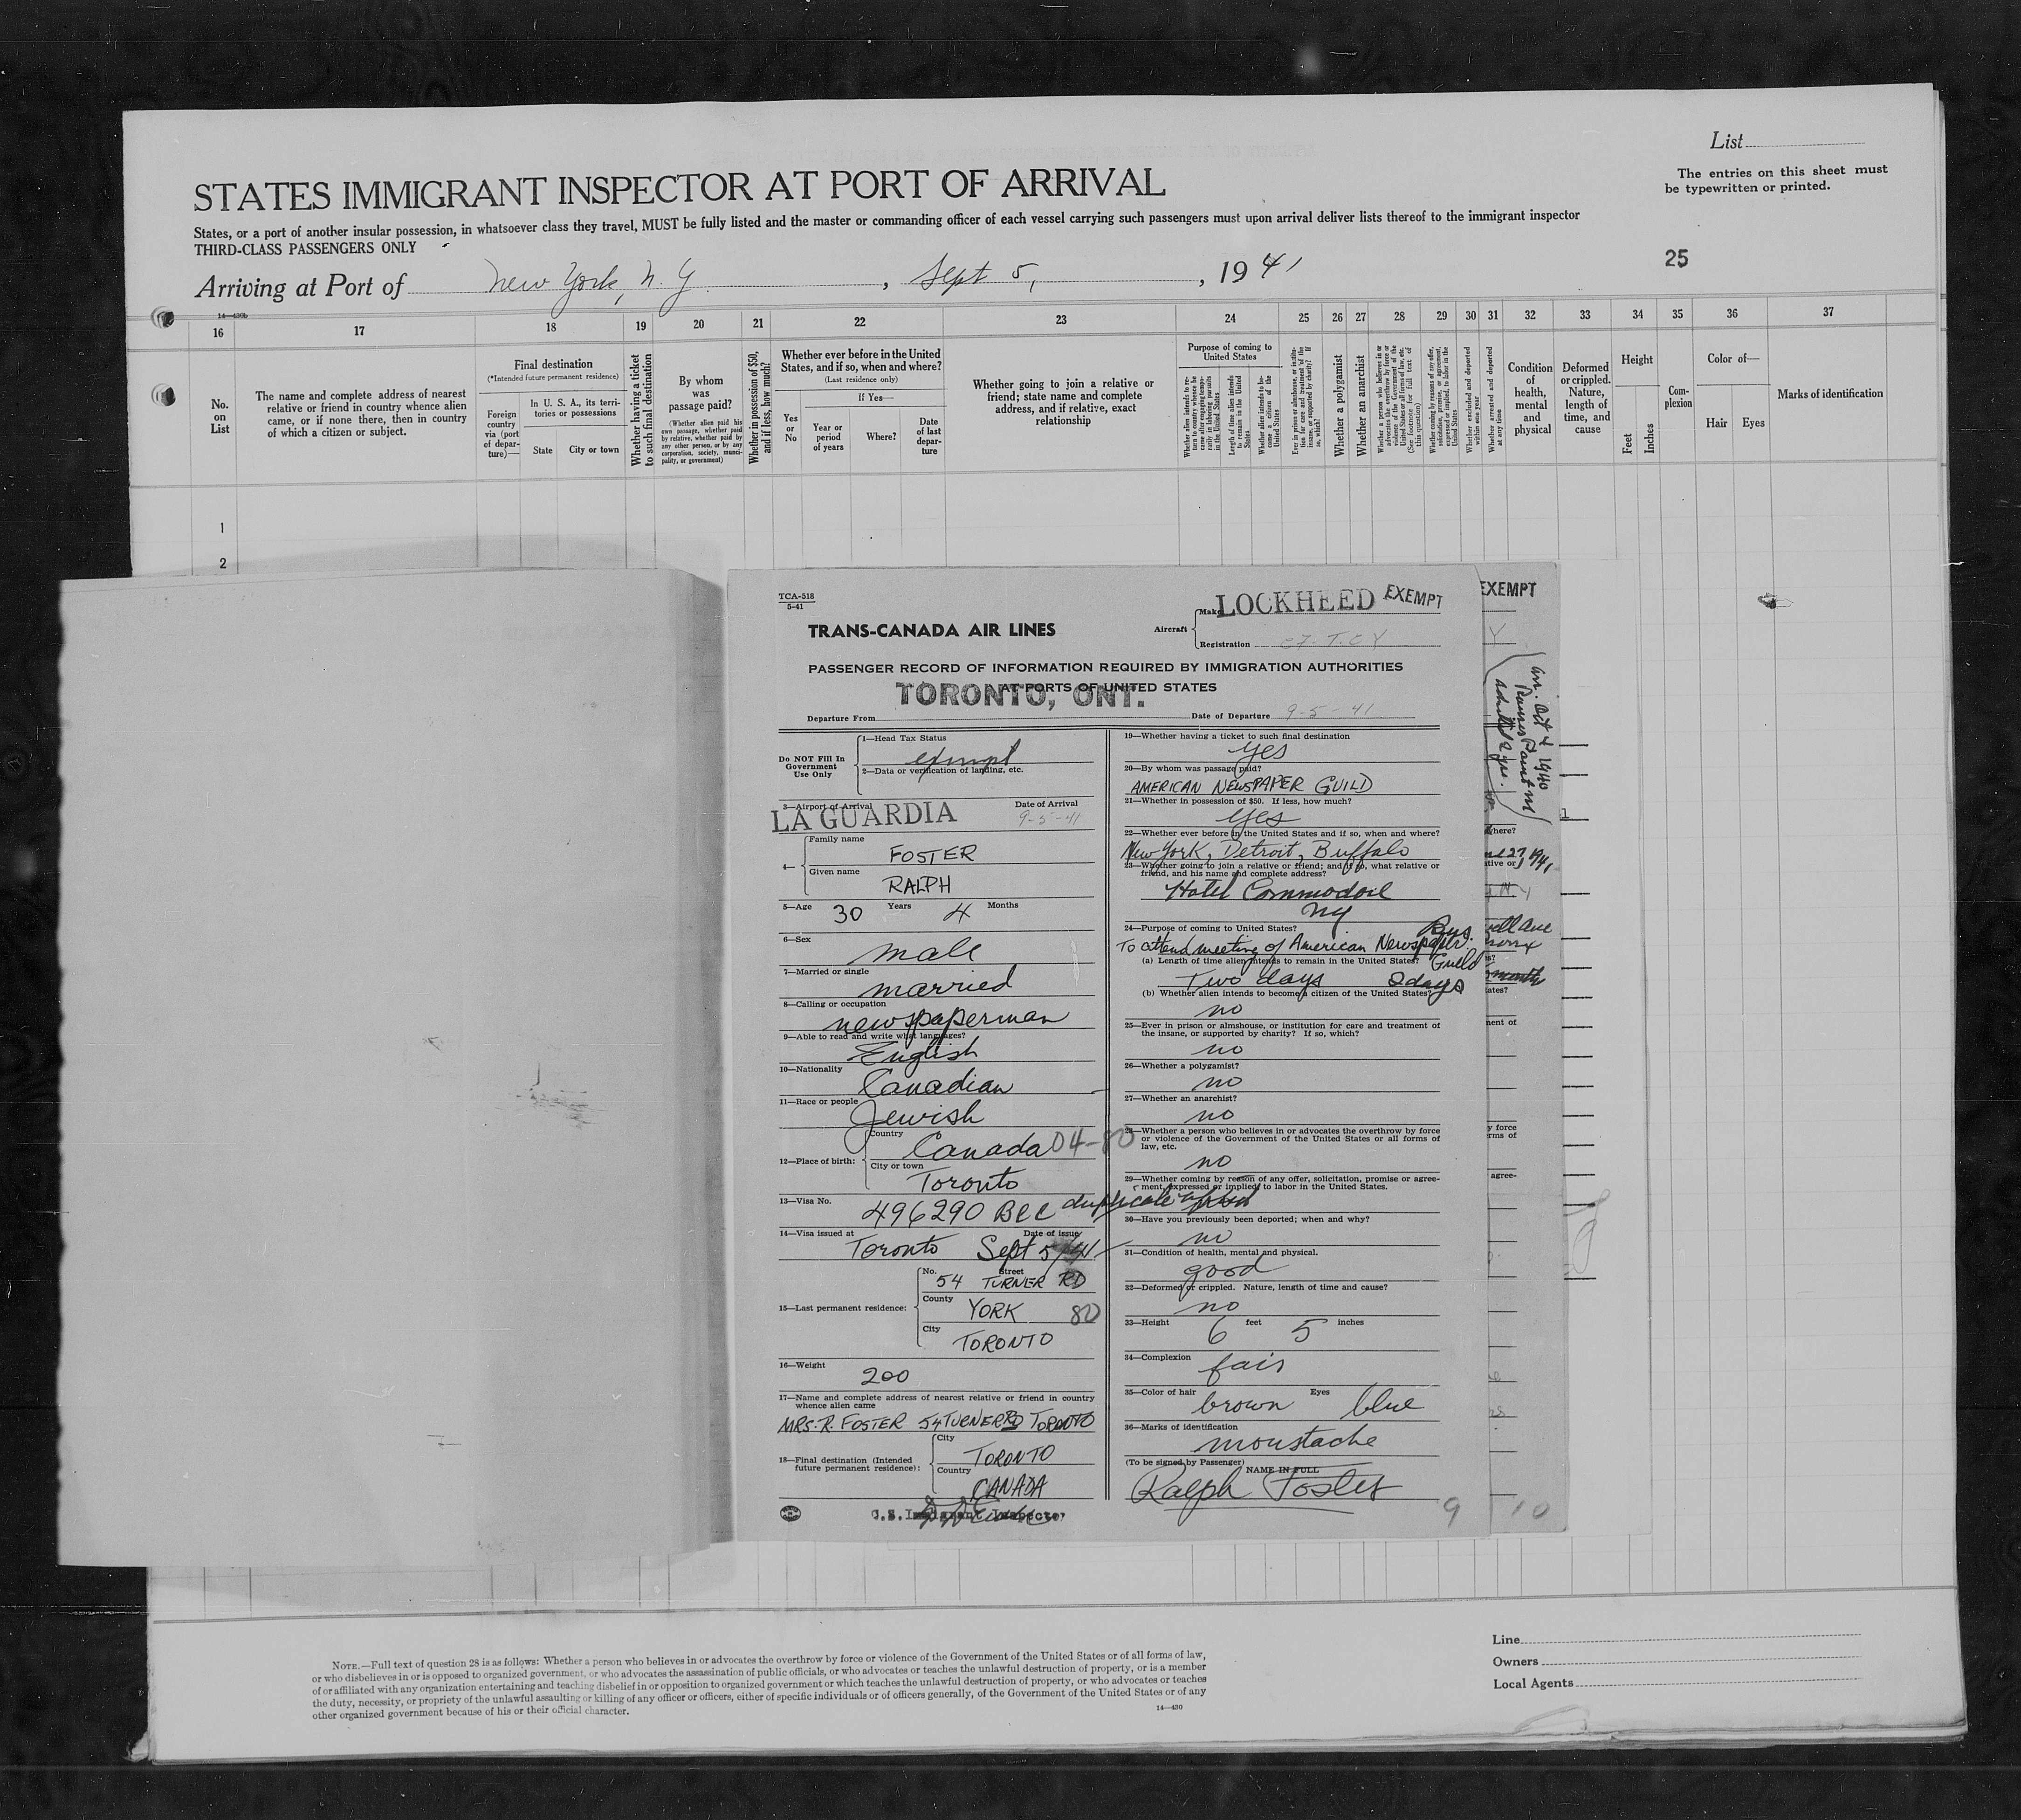 List
The entries on this sheet must
be typewritten or printed.
STATES IMMIGRANT INSPECTOR AT PORT OF ARRIVAL
States, or a port of another insular possession, in whatsoever class they travel, MUST be fully listed and the master or commanding officer of each vessel carrying such passengers must upon arrival deliver lists thereof to the immigrant inspector
THIRD-CLASS PASSENGERS ONLY
25
Arriving at Port of New York, N. Y. , Sept 5, , 1941
16 17 18 19 20 21 22 23 24 25 26 27 28 29 30 31 32 33 34 35 36 37
No.
on
List
The name and complete address of nearest
relative or friend in country whence alien
came, or if none there, then in country
of which a citizen or subject.
Final destination
(*Intended future permanent residence)
Foreign
country
via (port
of depar-
ture)—
In U. S. A., its terri-
tories or possessions
State
City or town
Whether having a ticket
to such final destination
By whom
was
passage paid?
(Whether alien paid his
own passage, whether paid
by relative, whether paid by
any other person, or by any
corporation, society, munici-
pality, or government)
Whether in possession of $50,
and if less, how much?
Whether ever before in the United
States, and if so, when and where?
(Last residence only)
Yes
or
No
If Yes—
Year or
period
of years
Where?
Date
of last
depar-
ture
Whether going to join a relative or
friend; state name and complete
address, and if relative, exact
relationship
Purpose of coming to
United States
Length of time alien intends
to remain in the United
States
Whether alien intends to be-
come a citizen of the
United States
Whether a polygamist
Whether an anarchist
Whether excluded and deported
within one year
Whether arrested and deported
at any time
Condition
of
health,
mental
and
physical
Deformed
or crippled.
Nature,
length of
time, and
cause
Height
Feet
Inches
Com-
plexion
Color of—
Hair
Eyes
Marks of identification
1
2
TCA-518
5-41
TRANS-CANADA AIR LINES
Aircraft
Make LOCKHEED
EXEMPT
Registration
PASSENGER RECORD OF INFORMATION REQUIRED BY IMMIGRATION AUTHORITIES
AT PORTS OF UNITED STATES
TORONTO, ONT.
Departure From
Date of Departure 9-5-41
Do NOT Fill In
Government
Use Only
1—Head Tax Status
exempt
2—Data or verification of landing, etc.
3—Airport of Arrival
Date of Arrival
LA GUARDIA 9-5-41
4—
Family name
FOSTER
Given name
RALPH
5—Age 30 Years 4 Months
6—Sex
male
7—Married or single
married
8—Calling or occupation
newspaperman
9—Able to read and write what languages?
English
10—Nationality
Canadian
11—Race or people
Jewish
12—Place of birth:
Country
Canada 04-80
City or town
Toronto
13—Visa No.
496290 BCC duplicate
14—Visa issued at
Date of issue
Toronto Sept 5/41
15—Last permanent residence:
No. Street
54 TURNER RD
County
YORK 80
City
TORONTO
16—Weight
200
17—Name and complete address of nearest relative or friend in country
whence alien came
MRS. R. FOSTER 54 TURNER RD TORONTO
18—Final destination (Intended
future permanent residence):
City
TORONTO
Country
CANADA
U.S. Immigrant Inspector
19—Whether having a ticket to such final destination
yes
20—By whom was passage paid?
AMERICAN NEWSPAPER GUILD
21—Whether in possession of $50. If less, how much?
yes
22—Whether ever before in the United States and if so, when and where?
New York, Detroit, Buffalo
23—Whether going to join a relative or friend; and if so, what relative or
friend, and his name and complete address?
Hotel Commodore
NY
24—Purpose of coming to United States?
Bus.
To attend meeting of American Newspaper Guild
(a) Length of time alien intends to remain in the United States?
Two days 2 days
(b) Whether alien intends to become a citizen of the United States?
no
25—Ever in prison or almshouse, or institution for care and treatment of
the insane, or supported by charity? If so, which?
no
26—Whether a polygamist?
no
27—Whether an anarchist?
no
28—Whether a person who believes in or advocates the overthrow by force
or violence of the Government of the United States or all forms of
law, etc.
no
29—Whether coming by reason of any offer, solicitation, promise or agree-
ment, expressed or implied, to labor in the United States.
30—Have you previously been deported; when and why?
no
31—Condition of health, mental and physical.
good
32—Deformed or crippled. Nature, length of time and cause?
no
33—Height 6 feet 5 inches
34—Complexion
fair
35—Color of hair Eyes
brown blue
36—Marks of identification
moustache
(To be signed by Passenger) NAME IN FULL
Ralph Foster
9
EXEMPT
Y
10
NOTE.—Full text of question 28 is as follows: Whether a person who believes in or advocates the overthrow by force or violence of the Government of the United States or of all forms of law,
or who disbelieves in or is opposed to organized government, or who advocates the assassination of public officials, or who advocates or teaches the unlawful destruction of property, or is a member
of or affiliated with any organization entertaining and teaching disbelief in or opposition to organized government or which teaches the unlawful destruction of property, or who advocates or teaches
the duty, necessity, or propriety of the unlawful assaulting or killing of any officer or officers, either of specific individuals or of officers generally, of the Government of the United States or of any
other organized government because of his or their official character.
14—430
Line
Owners
Local Agents